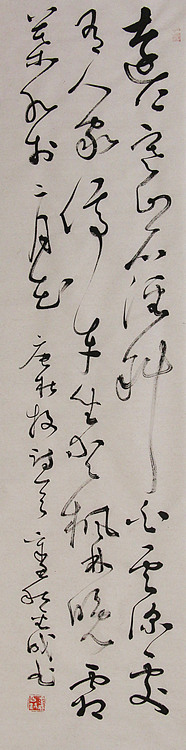 远上寒山石径斜白云深处
有人家停车坐爱枫林晚霜
叶红于二月花
唐杜牧诗